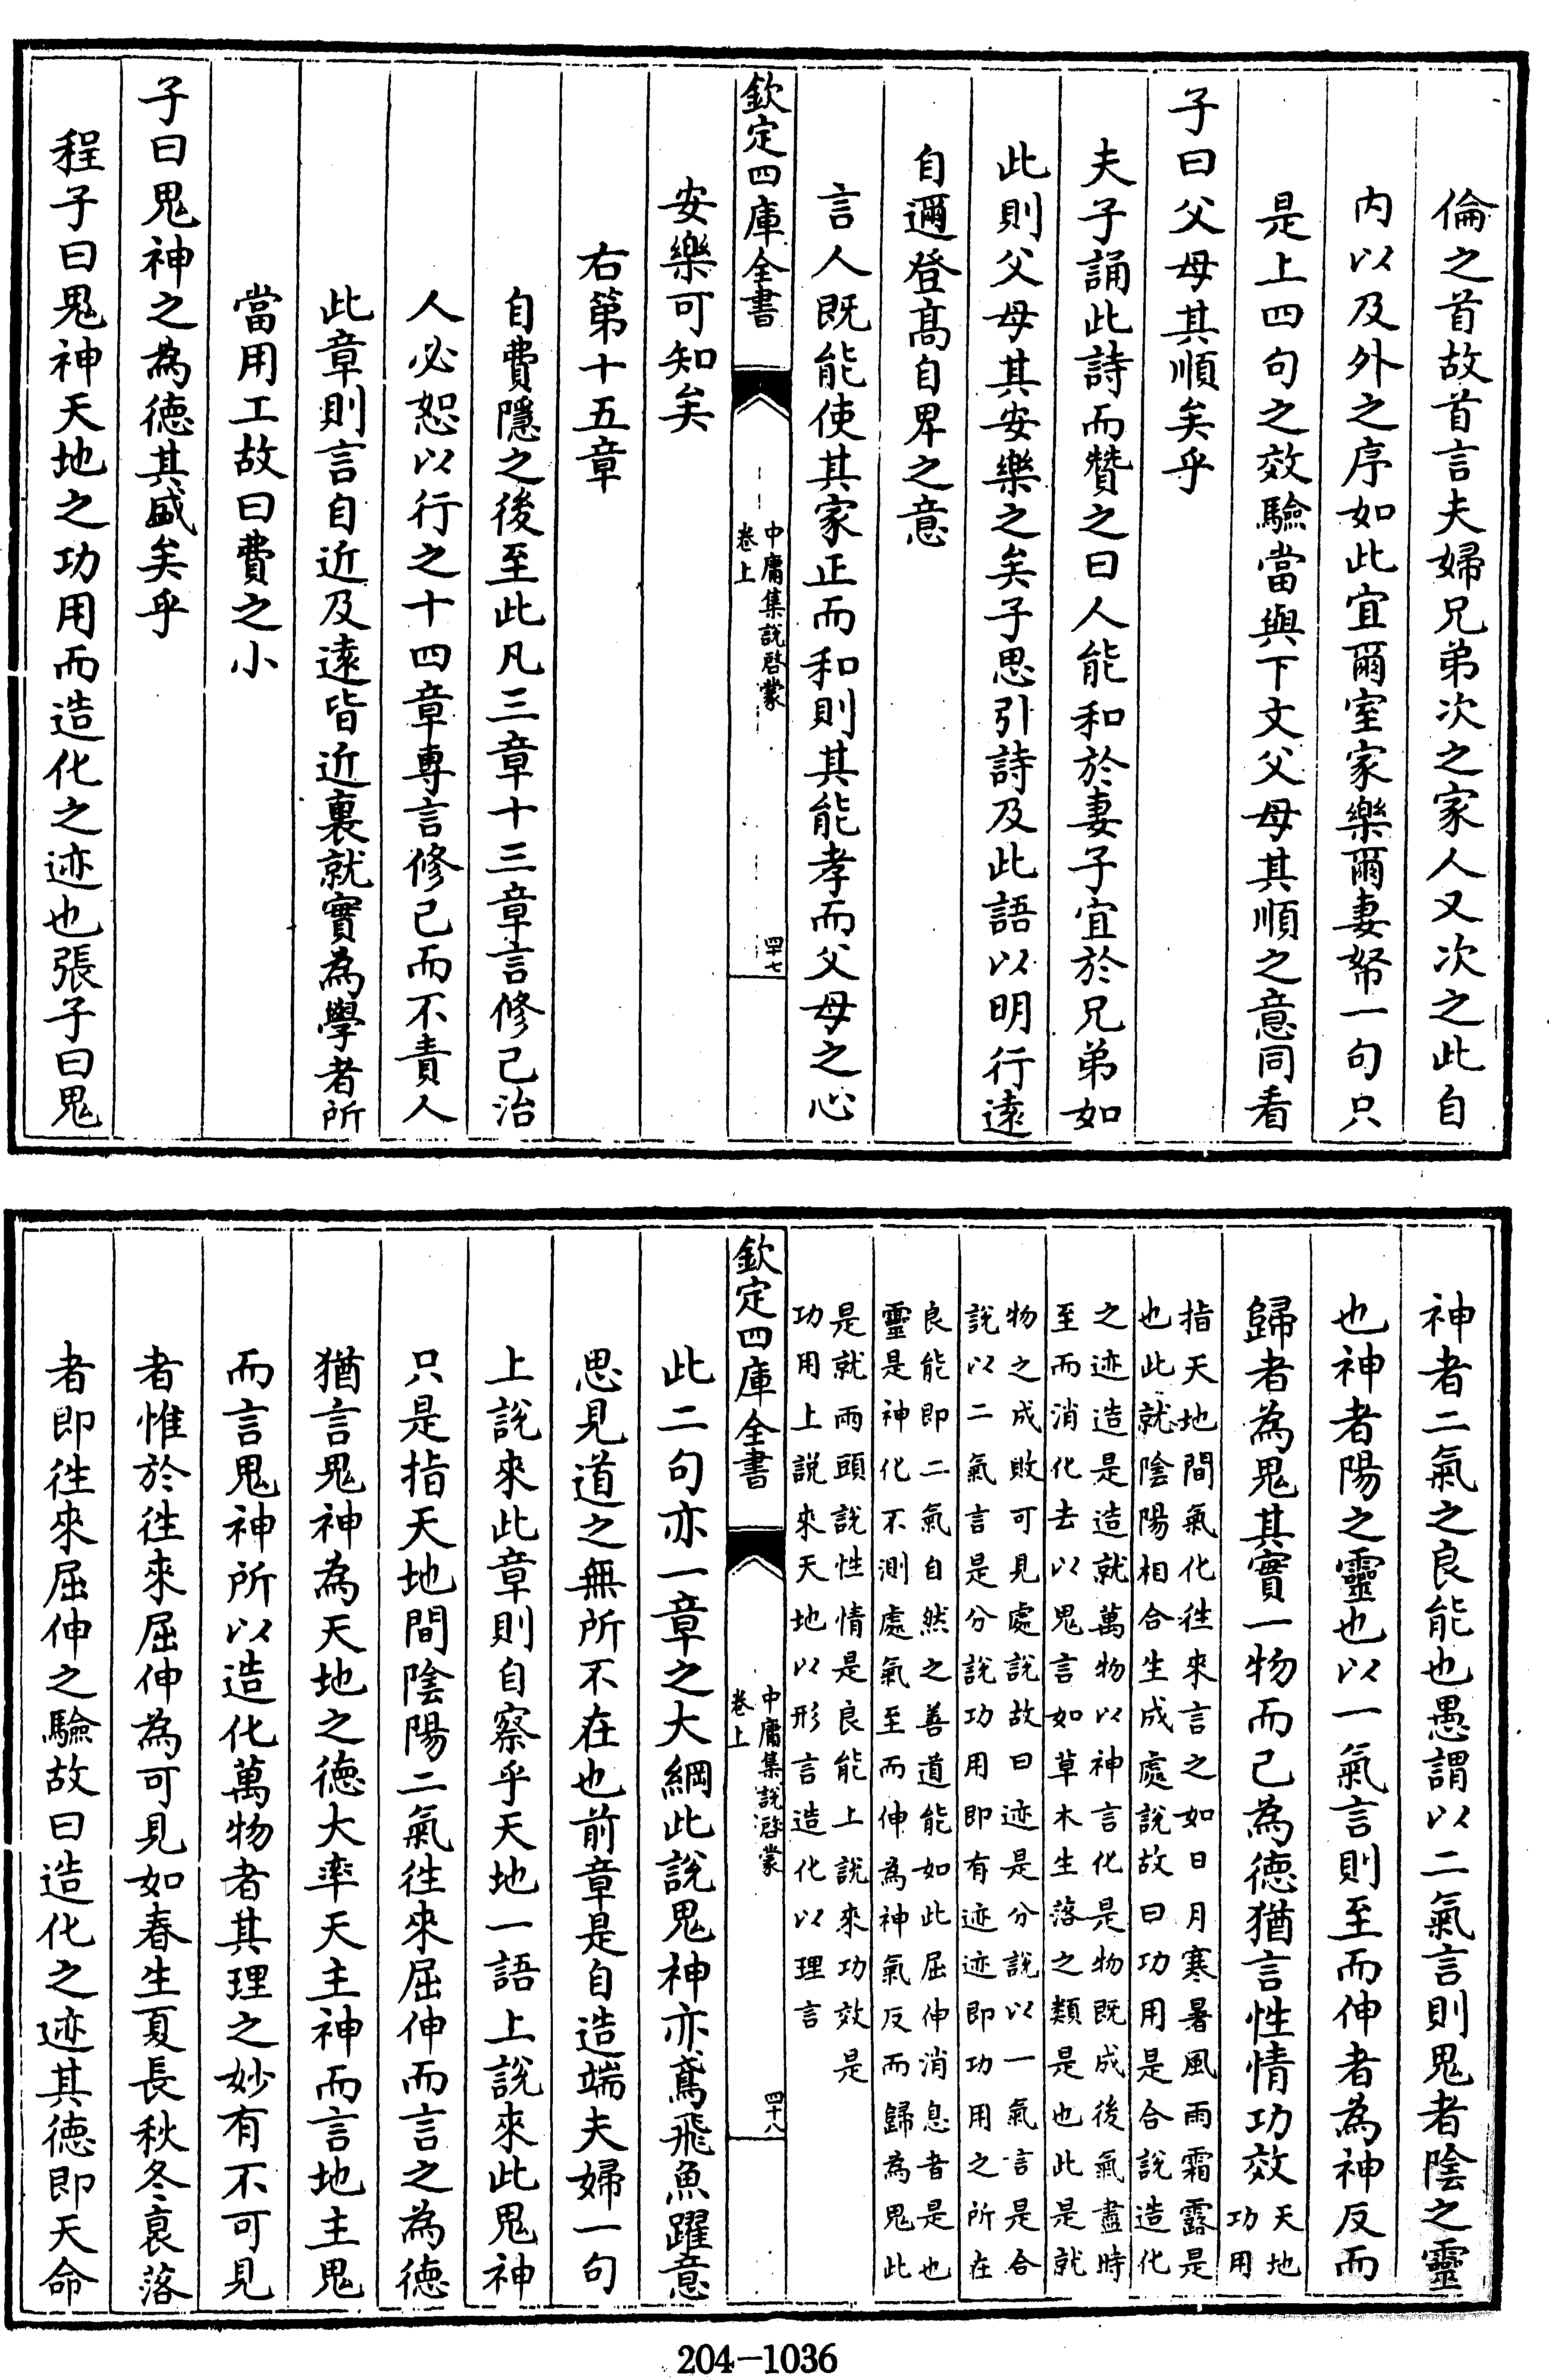 倫之首故首言夫婦兄弟次之家人又次之此自
内以及外之序如此宜爾室家樂爾妻帑一句只
是上四句之效驗當與下文父母其順之意同看
子曰父母其順矣乎
夫子誦此詩而贊之曰人能和於妻子宜於兄弟如
此則父母其安樂之矣子思引詩及此語以明行遠
自邇登髙自卑之意
言人既能使其家正而和則其能孝而父母之心
欽定四庫全書
中庸集說啓蒙
卷上
四十七
安樂可知矣
右第十五章
自費隱之後至此凡三章十三章言修己治
人必恕以行之十四章專言修己而不責人
此章則言自近及遠皆近裏就實為學者所
當用工故曰費之小
子曰鬼神之為徳其盛矣乎
程子曰鬼神天地之功用而造化之迹也張子曰鬼
神者二氣之良能也愚謂以二氣言則鬼者陰之靈
也神者陽之靈也以一氣言則至而伸者為神反而
歸者為鬼其實一物而已為徳猶言性情功效
天地
功用
指天地間氣化徃來言之如日月寒暑風雨霜露是
也此就陰陽相合生成處說故曰功用是合說造化
之迹造是造就萬物以神言化是物既成後氣盡時
至而消化去以鬼言如草木生落之類是也此是就
物之成敗可見處說故曰迹是分說以一氣言是合
說以二氣言是分說功用即有迹迹即功用之所在
良能即二氣自然之善道能如此屈伸消息者是也
靈是神化不測處氣至而伸為神氣反而歸為鬼此
是就兩頭說性情是良能上說來功效是
功用上說來天地以形言造化以理言
欽定四庫全書
中庸集說啓蒙
卷上
四十八
此二句亦一章之大綱此說鬼神亦鳶飛魚躍意
思見道之無所不在也前章是自造端夫婦一句
上說來此章則自察乎天地一語上說來此鬼神
只是指天地間陰陽二氣徃來屈伸而言之為徳
猶言鬼神為天地之徳大率天主神而言地主鬼
而言鬼神所以造化萬物者其理之妙有不可見
者惟於徃來屈伸為可見如春生夏長秋冬衰落
者即徃來屈伸之驗故曰造化之迹其徳即天命
204-1036